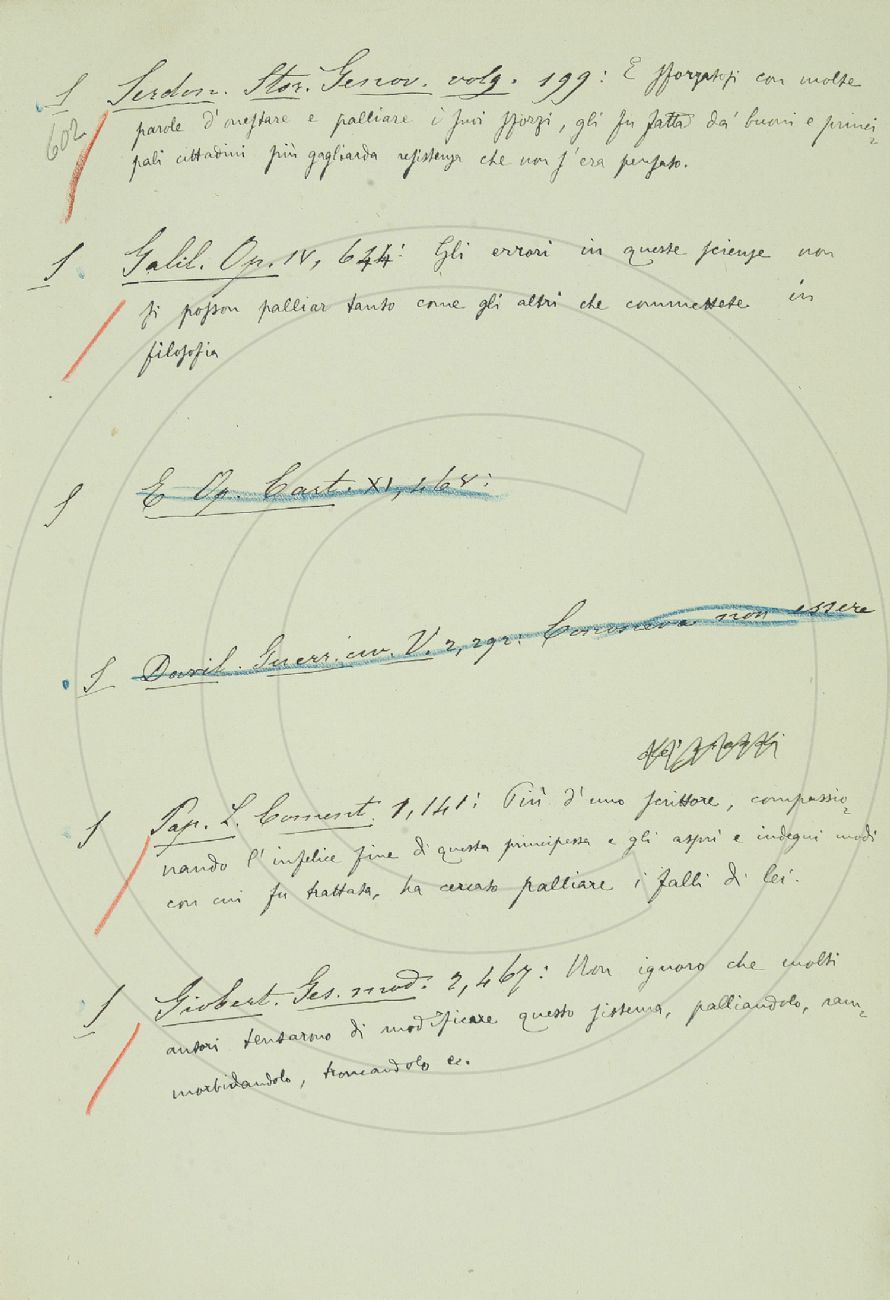 S Serdon. Stor. Genov. volg. 199: E sforzatosi con molte
602
parole d'onestare e palliare i suoi sforzi, gli fu fatta da' buoni e princi=
pali cittadini più gagliarda resistenza che non s'era pensato.
S Galil. Op. IV, 644: Gli errori in queste scienze non
si posson palliar tanto come gli altri che commettete in
filosofia
S E Op. Cart. XI, 468:
S Davil. Guerr. civ. V. 2, 292: Conosceva non essere
S Pap. L. Coment. 1, 141: Più d'uno scrittore, compassio=
nando l'infelice fine di questa principessa e gli aspri e indegni modi
con cui fu trattata, ha cercato palliare i falli di lei.
S Giobert. Ges. mod. 2, 467: Non ignoro che molti
autori tentarono di modificare questo sistema, palliandolo, ram=
morbidandolo, troncandolo ec.